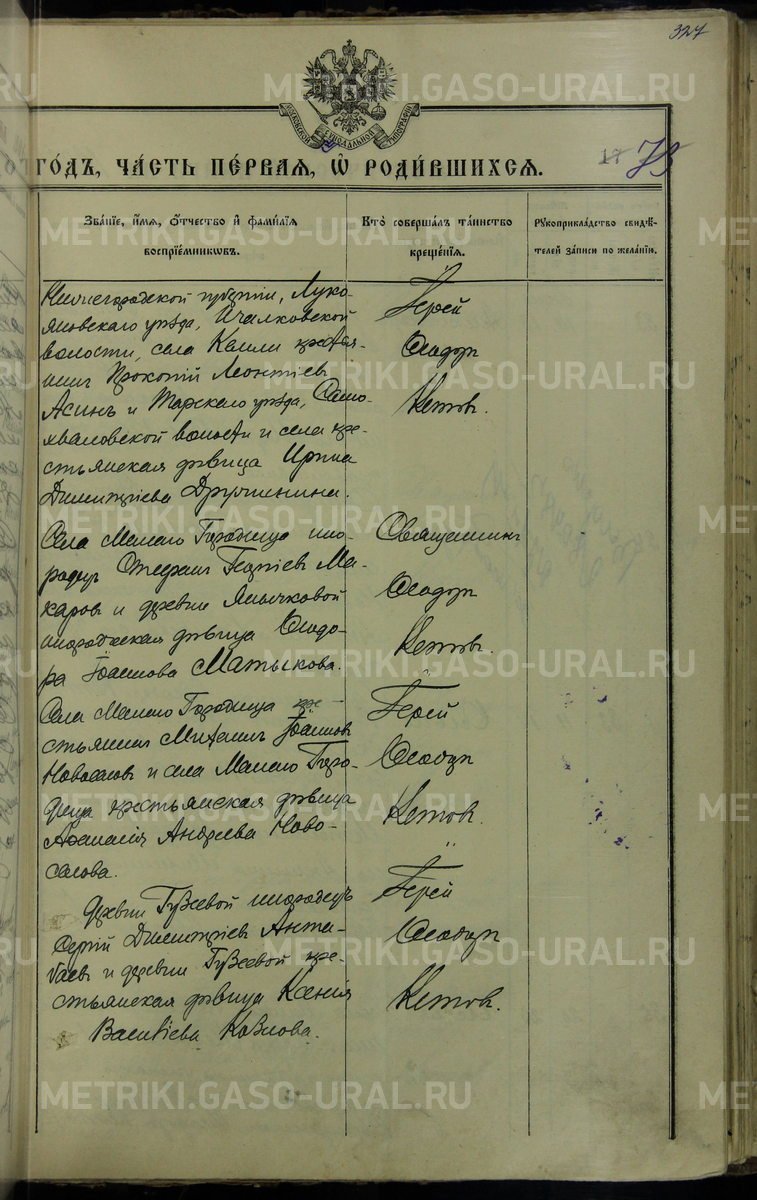 327
СѴНОДАЛЬНОЙ ТИПОГРАФІИ
ГОДЪ, ЧАСТЬ ПЕРВАЯ, Ѡ РОДИВШИХСЯ.
73
Званіе, имя, отчество и фамилія
воспріемниковъ.
Кто совершалъ таинство
крещенія.
Рукоприкладство свидѣ-
телей записи по желанію.
Нижегородской губерніи, Луко-
яновскаго уѣзда, Ичалковской
волости, села Кемли крестья-
нинъ Прокопій Леонтіевъ
Асинъ и Тарскаго уѣзда,
волости и села кре-
стьянская дѣвица Ирина
Димитріева Дружинина.
Іерей
Ѳеодоръ
Кетовъ.
Села Малаго Городища ино-
родецъ Стефанъ Георгіевъ Ма-
каровъ и деревни
инородческая дѣвица Ѳеодо-
ра Іоаннова Матыкова.
Священникъ
Ѳеодоръ
Кетовъ.
Села Малаго Городища кре-
стьянинъ Михаилъ Іоанновъ
Новоселовъ и села Малаго Горо-
дища крестьянская дѣвица
Аѳанасія Андреева Ново-
селова.
Іерей
Ѳеодоръ
Кетовъ.
Деревни Гузеевой инородецъ
Сергій Димитріевъ Анта-
баевъ и деревни Гузеевой кре-
стьянская дѣвица Ксенія
Василіева Козлова.
Іерей
Ѳеодоръ
Кетовъ.
METRIKI.GASO-URAL.RU